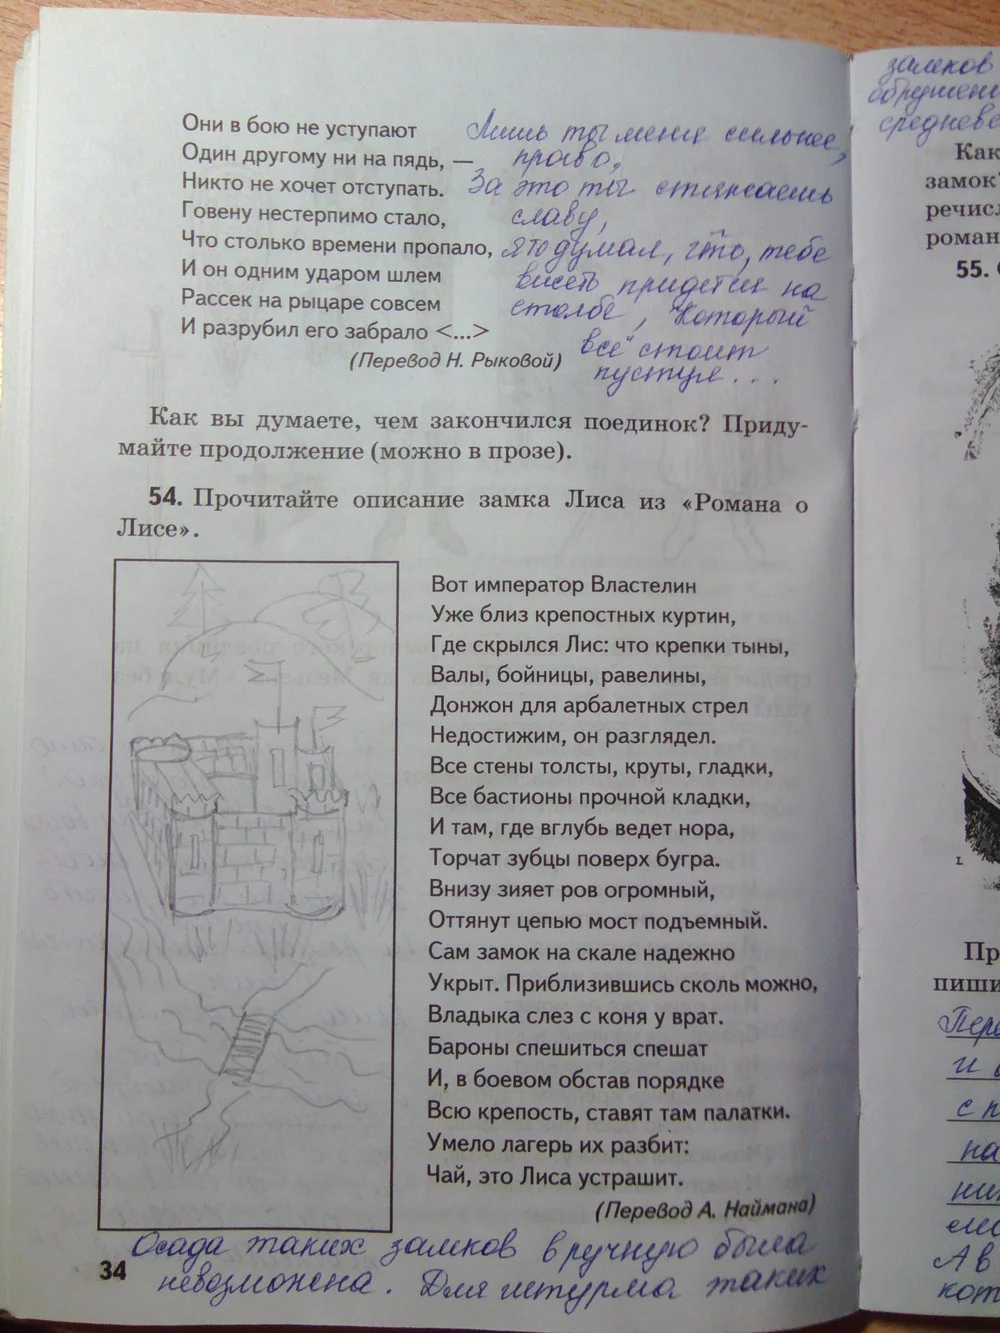 Они в бою не уступают
Один другому ни на пядь, —
Никто не хочет отступать.
Говену нестерпимо стало,
Что столько времени пропало,
И он одним ударом шлем
Рассек на рыцаре совсем
И разрубил его забрало <...>
(Перевод Н. Рыковой)
Лишь ты меня сильнее,
право,
За это ты стяжаешь
славу,
Я ж думал, что, тебе
висеть придётся на
столбе, который
всё стоит
пустуя...
Как вы думаете, чем закончился поединок? Приду-
майте продолжение (можно в прозе).
54. Прочитайте описание замка Лиса из «Романа о
Лисе».
Вот император Властелин
Уже близ крепостных куртин,
Где скрылся Лис: что крепки тыны,
Валы, бойницы, равелины,
Донжон для арбалетных стрел
Недостижим, он разглядел.
Все стены толсты, круты, гладки,
Все бастионы прочной кладки,
И там, где вглубь ведет нора,
Торчат зубцы поверх бугра.
Внизу зияет ров огромный,
Оттянут цепью мост подъемный.
Сам замок на скале надежно
Укрыт. Приблизившись сколь можно,
Владыка слез с коня у врат.
Бароны спешиться спешат
И, в боевом обстав порядке
Всю крепость, ставят там палатки.
Умело лагерь их разбит:
Чай, это Лиса устрашит.
(Перевод А. Наймана)
Осада таких замков вручную была
невозможна. Для штурма таких
34
замков
средневе
Как
замок
речисл
роман
55.
Пр
пиши
Пере
и
с п
на
А в
кот